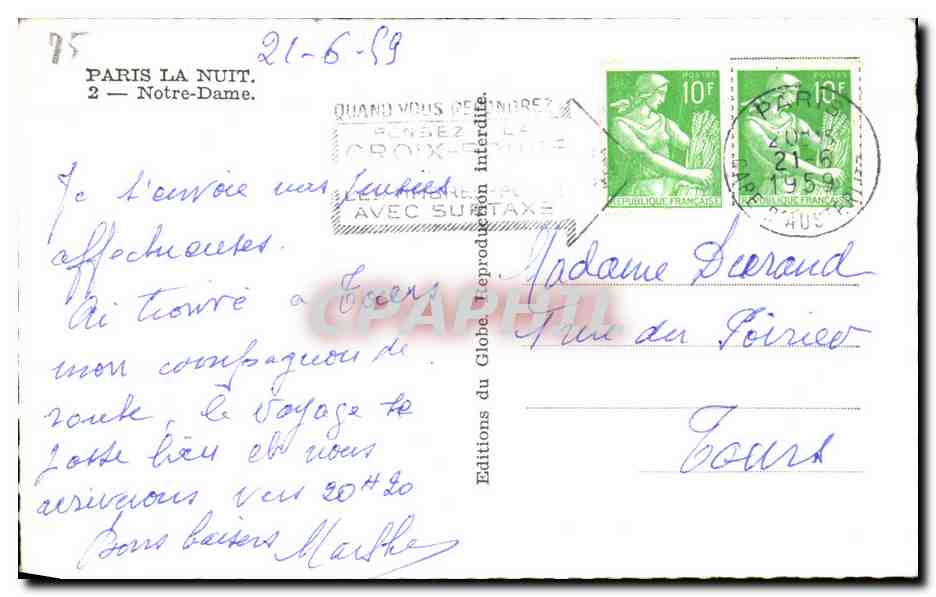 75
21-6-59
PARIS LA NUIT.
2 — Notre-Dame.
QUAND VOUS
PENSEZ A LA
CROIX-ROUGE
AVEC SURTAXE
POSTES
10F
REPUBLIQUE FRANÇAISE
POSTES
10F
REPUBLIQUE FRANÇAISE
PARIS
21-6
1959
GARE D'AUSTERLITZ
Je t'envoie mes
affectueuses.
Ai trouvé à Tours
mon compagnon de
route, le voyage se
passe bien et nous
arriverons vers 20H20
Bons baisers Marthe
Editions du Globe. Reproduction interdite.
Madame Durand
rue du Poirier
Tours
CPAPHIL